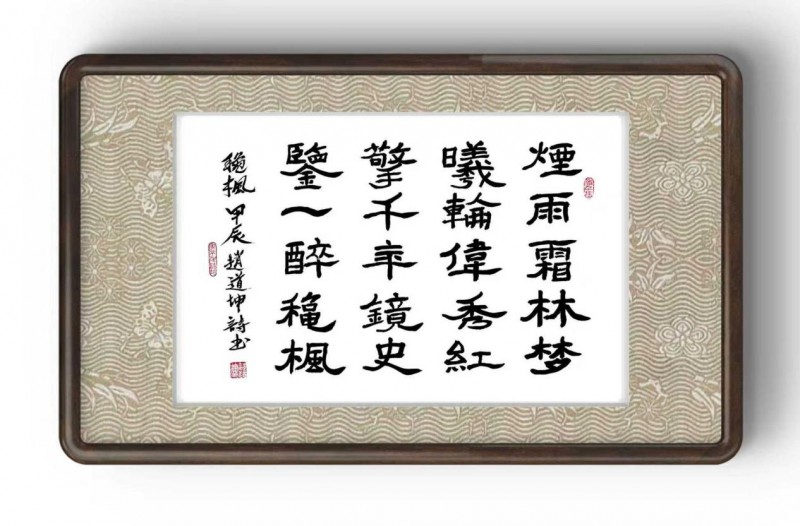 煙雨霜林梦
曦輪偉秀紅
擎千年鏡史
鑒一醉龝楓
龝楓 甲辰 趙道坤詩书